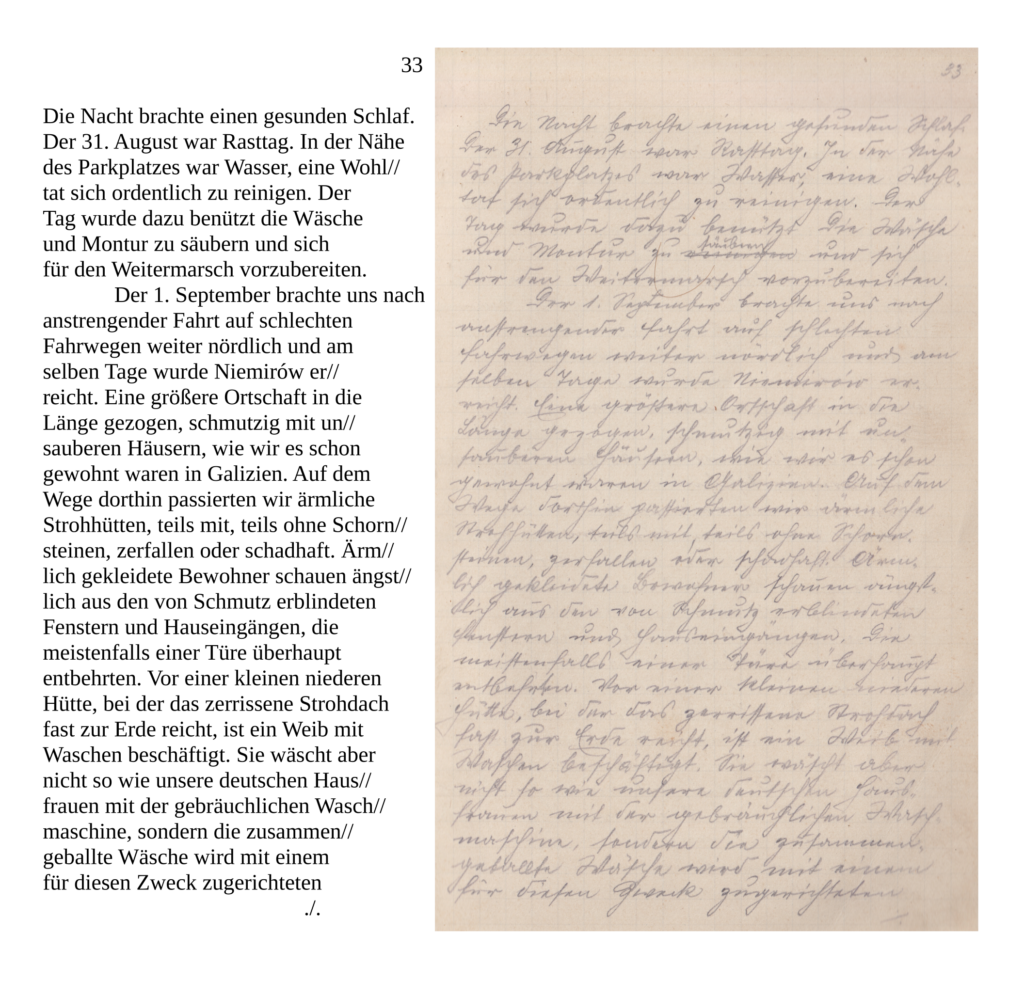 33
Die Nacht brachte einen gesunden Schlaf.
Der 31. August war Rasttag. In der Nähe
des Parkplatzes war Wasser, eine Wohl//
tat sich ordentlich zu reinigen. Der
Tag wurde dazu benützt die Wäsche
und Montur zu säubern und sich
für den Weitermarsch vorzubereiten.
Der 1. September brachte uns nach
anstrengender Fahrt auf schlechten
Fahrwegen weiter nördlich und am
selben Tage wurde Niemirów er//
reicht. Eine größere Ortschaft in die
Länge gezogen, schmutzig mit un//
sauberen Häusern, wie wir es schon
gewohnt waren in Galizien. Auf dem
Wege dorthin passierten wir ärmliche
Strohhütten, teils mit, teils ohne Schorn//
steinen, zerfallen oder schadhaft. Ärm//
lich gekleidete Bewohner schauen ängst//
lich aus den von Schmutz erblindeten
Fenstern und Hauseingängen, die
meistenfalls einer Türe überhaupt
entbehrten. Vor einer kleinen niederen
Hütte, bei der das zerrissene Strohdach
fast zur Erde reicht, ist ein Weib mit
Waschen beschäftigt. Sie wäscht aber
nicht so wie unsere deutschen Haus//
frauen mit der gebräuchlichen Wasch//
maschine, sondern die zusammen//
geballte Wäsche wird mit einem
für diesen Zweck zugerichteten
./.
33
Die Nacht brachte einen gesunden Schlaf.
Der 31. August war Rasttag. In der Nähe
des Parkplatzes war Wasser, eine Wohl-
tat sich ordentlich zu reinigen. Der
Tag wurde dazu benützt die Wäsche
und Montur zu säubern und sich
für den Weitermarsch vorzubereiten.
Der 1. September brachte uns nach
anstrengender Fahrt auf schlechten
Fahrwegen weiter nördlich und am
selben Tage wurde Niemirów er-
reicht. Eine größere Ortschaft in die
Länge gezogen, schmutzig mit un-
sauberen Häusern, wie wir es schon
gewohnt waren in Galizien. Auf dem
Wege dorthin passierten wir ärmliche
Strohhütten, teils mit, teils ohne Schorn-
steinen, zerfallen oder schadhaft. Ärm-
lich gekleidete Bewohner schauen ängst-
lich aus den von Schmutz erblindeten
Fenstern und Hauseingängen, die
meistenfalls einer Türe überhaupt
entbehrten. Vor einer kleinen niederen
Hütte, bei der das zerrissene Strohdach
fast zur Erde reicht, ist ein Weib mit
Waschen beschäftigt. Sie wäscht aber
nicht so wie unsere deutschen Haus-
frauen mit der gebräuchlichen Wasch-
maschine, sondern die zusammen-
geballte Wäsche wird mit einem
für diesen Zweck zugerichteten
./.